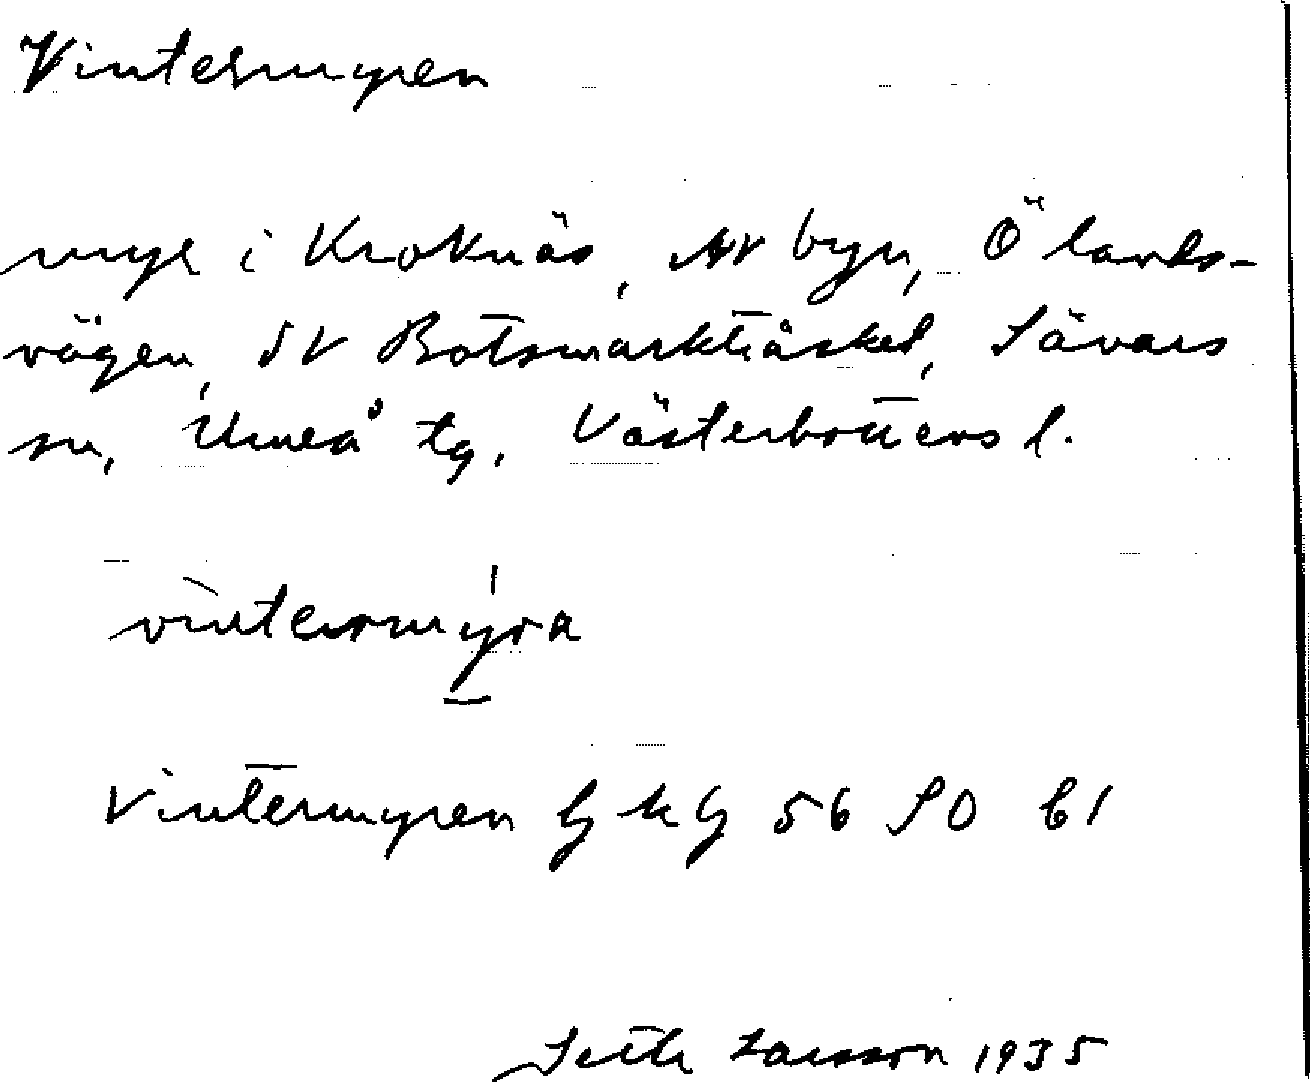 Vintermyren
myr i Kroknäs, NV byn, Ö lands-
vägen, SV Botsmarkträsket, Sävars
sn, Umeå tg, Västerbottens l.
vìntermýra
Vintermyren GKG 56 SO b1
Seth Larsson 1935